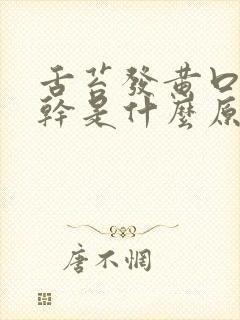 舌苔發黃口
幹是什麼原
唐不惘